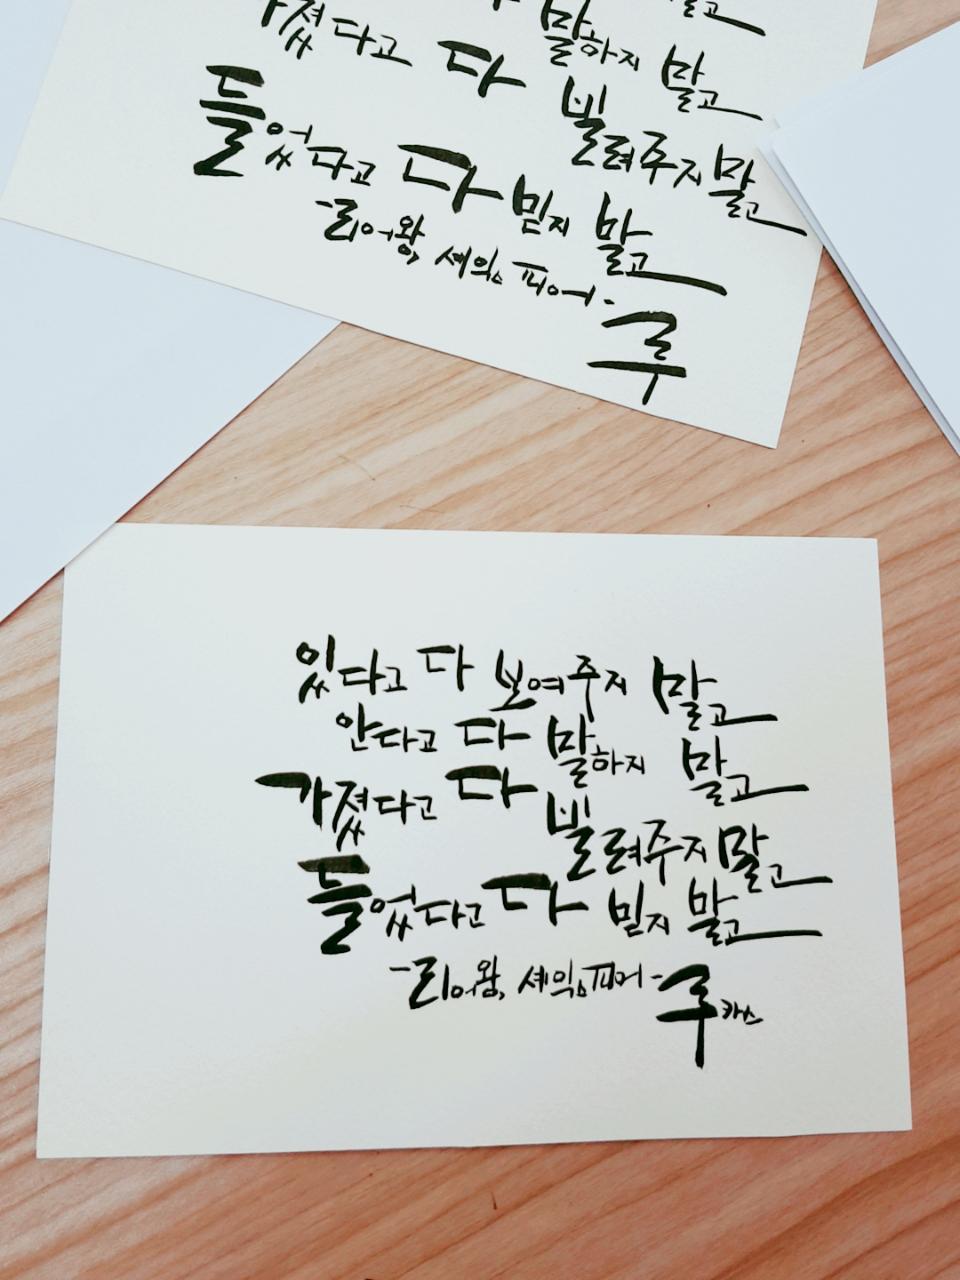 말고
말하지 말고
가졌다고 다 빌려주지 말고
들었다고 다 믿지 말고
-리어왕, 셰익스피어-
루
있다고 다 보여주지 말고
안다고 다 말하지 말고
가졌다고 다 빌려주지 말고
들었다고 다 믿지 말고
-리어왕, 셰익스피어-
루카스